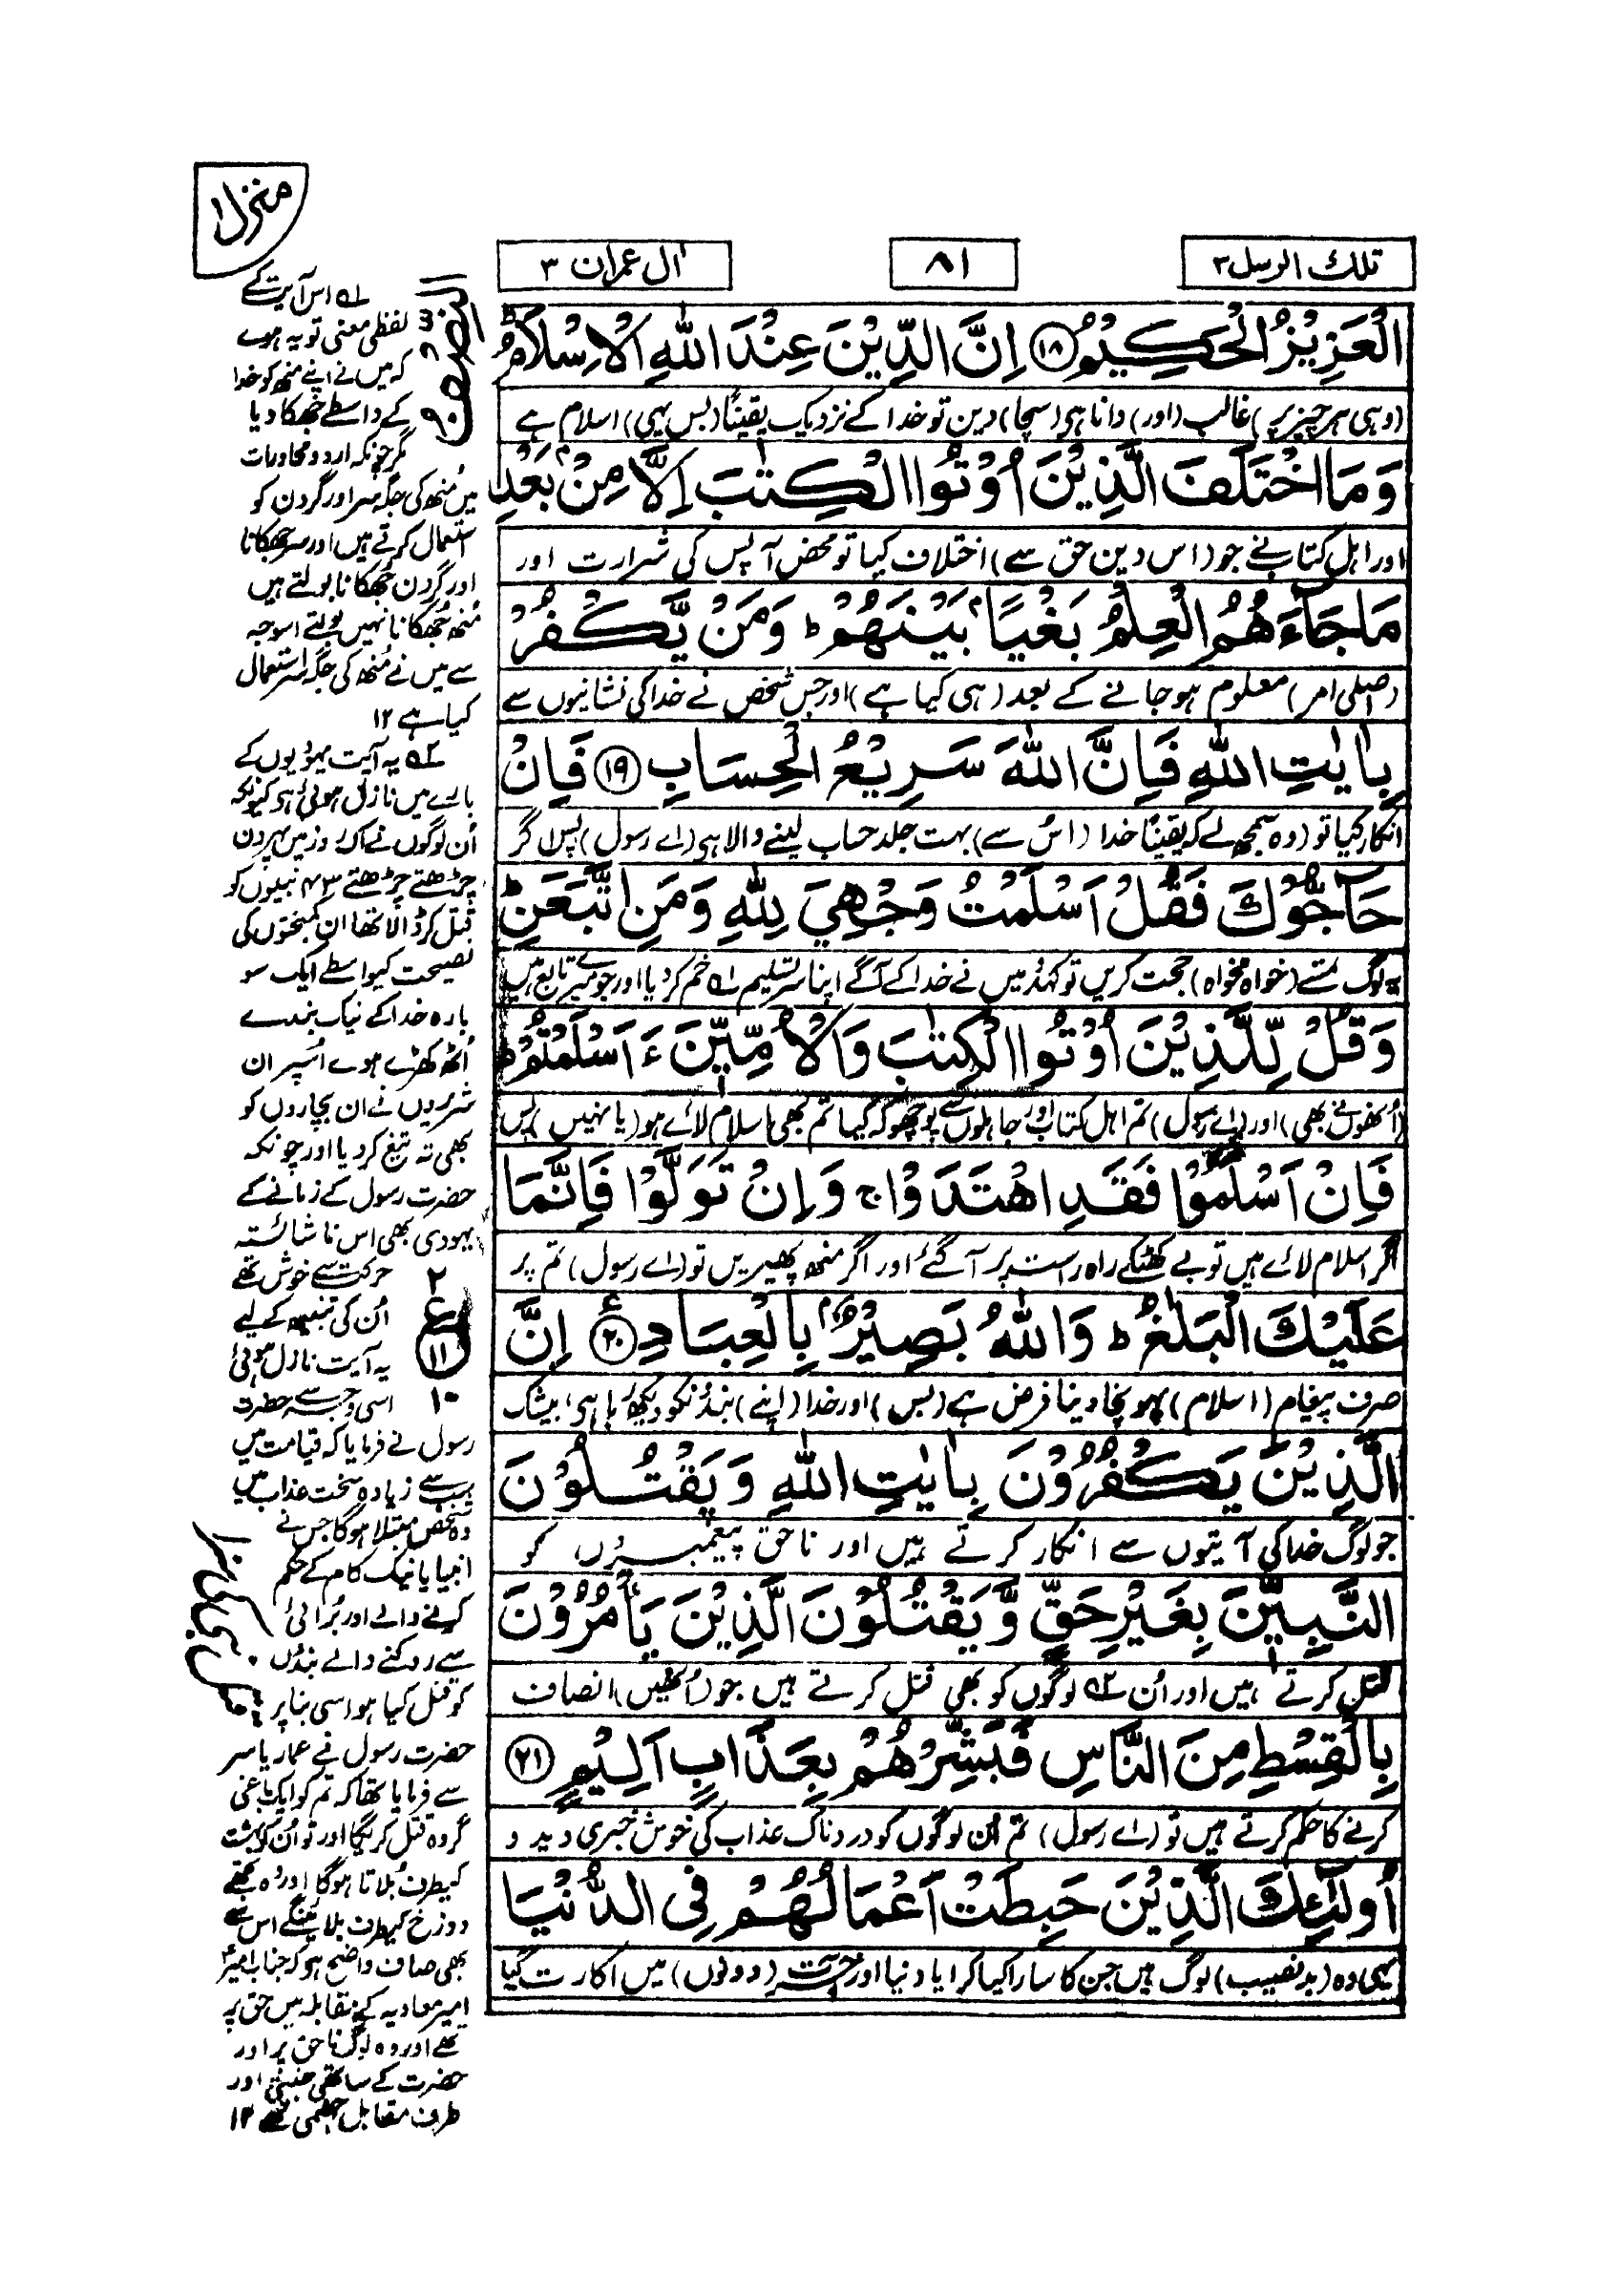 منزل ۱
تلك الرسل ۳
۸۱
اٰل عمران ۳
الْعَزِيْزُ الْحَكِيْمُ ۱۸ اِنَّ الدِّيْنَ عِنْدَ اللّٰهِ الْاِسْلَامُ ؕ
(وہی ہر چیز پر) غالب (اور) دانا ہی (سچا) دین تو خدا کے نزدیک یقیناً (بس یہی) اسلام ہے
وَمَا اخْتَلَفَ الَّذِيْنَ اُوْتُوا الْكِتٰبَ اِلَّا مِنْۢ بَعْدِ
اور اہل کتاب نے جو (اس دین حق سے) اختلاف کیا تو محض آپس کی شرارت اور
مَا جَآءَهُمُ الْعِلْمُ بَغْيًاۢ بَيْنَهُمْ ؕ وَمَنْ يَّكْفُرْ
(اصلی امر) معلوم ہو جانے کے بعد (ہی کیا ہے) اور جس شخص نے خدا کی نشانیوں سے
بِاٰيٰتِ اللّٰهِ فَاِنَّ اللّٰهَ سَرِيْعُ الْحِسَابِ ۱۹ فَاِنْ
انکار کیا تو (وہ سمجھ لے کہ یقیناً خدا (اس سے) بہت جلد حساب لینے والا ہی (اے رسول) پس اگر
حَآجُّوْكَ فَقُلْ اَسْلَمْتُ وَجْهِيَ لِلّٰهِ وَمَنِ اتَّبَعَنِ ؕ
یہ لوگ تمسے (خواہ مخواہ) حجت کریں تو کہدو میں نے خدا کے آگے اپنا سر تسلیم ۱؎ خم کر دیا اور جو میرے تابع ہیں
وَقُلْ لِّلَّذِيْنَ اُوْتُوا الْكِتٰبَ وَالْاُمِّيّٖنَ ءَاَسْلَمْتُمْ ؕ
(اُنھوں نے بھی) اور (اے رسول) تم اہل کتاب اور جاہلوں سے پوچھو کہ کیا تم بھی اسلام لائے ہو (یا نہیں) پس
فَاِنْ اَسْلَمُوْا فَقَدِ اهْتَدَوْا ج وَاِنْ تَوَلَّوْا فَاِنَّمَا
اگر اسلام لائے ہیں تو بے کھٹکے راہ راست پر آ گئے اور اگر منھ پھیریں تو (اے رسول) تم پر
عَلَيْكَ الْبَلٰغُ ؕ وَاللّٰهُ بَصِيْرٌۢ بِالْعِبَادِ ۲۰ ع اِنَّ
صرف پیغام (اسلام) پہونچا دینا فرض ہے (بس) اور خدا (اپنے) بندونکو دیکھ رہا ہی ابیشک
الَّذِيْنَ يَكْفُرُوْنَ بِاٰيٰتِ اللّٰهِ وَيَقْتُلُوْنَ
جو لوگ خدا کی آیتوں سے انکار کرتے ہیں اور ناحق پیغمبروں کو
النَّبِيّٖنَ بِغَيْرِ حَقٍّ وَّيَقْتُلُوْنَ الَّذِيْنَ يَاْمُرُوْنَ
قتل کرتے ہیں اور اُن ۲؎ لوگوں کو بھی قتل کرتے ہیں جو (اُنھیں) انصاف
بِالْقِسْطِ مِنَ النَّاسِ فَبَشِّرْهُمْ بِعَذَابٍ اَلِيْمٍ ۲۱
کرنے کا حکم کرتے ہیں تو (اے رسول) تم اُن لوگوں کو دردناک عذاب کی خوش خبری دیدو
اُولٰٓئِكَ الَّذِيْنَ حَبِطَتْ اَعْمَالُهُمْ فِى الدُّنْيَا
یہی وہ (بدنصیب) لوگ ہیں جن کا سارا کیا کرایا دنیا اور آخرت (دونوں) میں اکارت گیا
۱؎ اس آیت کے
لفظی معنی تو یہ ہوے
کہ میں نے اپنے منھ کو خدا
کے واسطے جھکا دیا
مگر چونکہ اردو محاورات
میں مُنھ کی جگہ سر اور گردن کو
استعمال کرتے ہیں اور سر جھکانا
اور گردن جھکانا بولتے ہیں
مُنھ جھکانا نہیں بولتے اسوجہ
سے میں نے مُنھ کی جگہ سر استعمال
کیا ہے ۱۲
۲؎ یہ آیت یہودیوں کے
بارے میں نازل ہوئی ہی کیونکہ
اُن لوگوں نے ایک روز میں پہر دن
چڑھتے چڑھتے ۴۳ نبیوں کو
قتل کر ڈالا تھا ان کمبختوں کی
نصیحت کیواسطے ایک سو
بارہ خدا کے نیک بندے
اُٹھ کھڑے ہوے اُسپر ان
شریروں نے ان بچاروں کو
بھی تہ تیغ کر دیا اور چونکہ
حضرت رسول کے زمانے کے
یہودی بھی اس ناشائستہ
حرکت سے خوش تھے
اُن کی تنبیہ کے لیے
یہ آیت نازل ہوئی
اسی وجہ سے حضرت
رسول نے فرمایا کہ قیامت میں
سب سے زیادہ سخت عذاب میں
وہ شخص مبتلا ہوگا جس نے
انبیا یا نیک کام کے حکم
کرنے والے اور بُرائی
سے روکنے والے بندوں
کو قتل کیا ہو اسی بنا پر
حضرت رسول نے عمار یاسر
سے فرمایا تھا کہ تم کو ایک باغی
گروہ قتل کریگا اور تو اُن کو بہشت
کیطرف بُلاتا ہوگا اور وہ تجھے
دوزخ کیطرف بلائینگے اس سے
بھی صاف واضح ہو کہ جناب امیرؑ
امیر معاویہ کے مقابلہ میں حق پہ
تھے اور وہ لوگ ناحق پر اور
حضرت کے ساتھی جنتی اور
طرف مقابل جہنمی تھے ۱۲
۲
ع
۱۱
۱۰